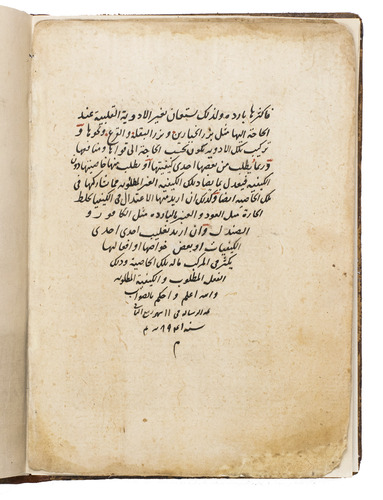 فاكثرها باردة ولذلك يستعان بغير الادوية القلبية عند
الحاجة اليها مثل بزر الخيارين وبزر البقلة والقرع ونحوها و
تركيب تلك الادوية يكون بحسب الحاجة الى قواها ومنافعها
وربما يطلب من بعضها احدى كيفيتها او يطلب منها خاصيتها دون
الكيفية فيعدل بما يضاد تلك الكيفية الغير المطلوبة مما يشاركها في
تلك الخاصية ايضا وكذلك ان اريد منها الاعتدال في الكيفيات خلط
الحارة مثل العود والعنبر بالباردة مثل الكافور و
الصندل وان اريد تغليب احدى
الكيفيات او بعض خواصها وافعالها
يكثر في المركب ماله تلك الخاصية وذلك
الفعل المطلوب والكيفية المطلوبة
والله اعلم واحكم بالصواب
الرسالة في ١١ شهر ربيع الثاني
سنة
م